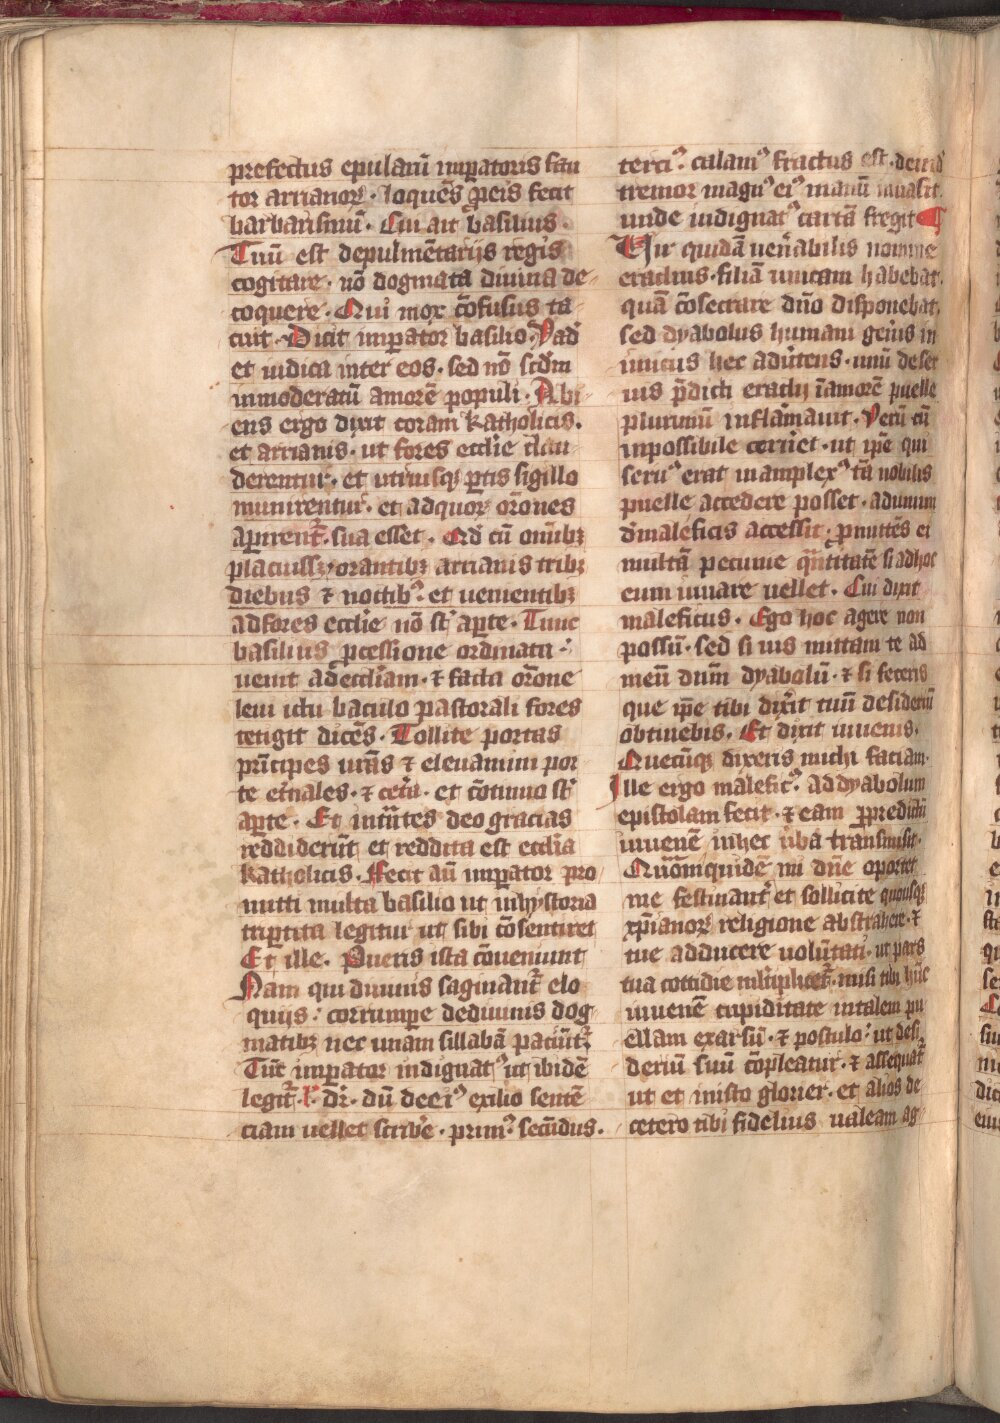 prefectus epularū imꝑatoris fau
tor arrianoꝝ · loquēs ꝓ eis fecit
barbarismū · Cui ait basilius ·
Tuū est de pulmētarijs regis
cogitare · nō dogmata diuina de
coquere · Qui mox cōfusus ta
cuit · Dicit imꝑator basilio · Vad̾
et iudica inter eos · sed nō scd̄m
inmoderatū amorē populi · Abi
ens ergo dixit coram katholicis ·
et arrianis · ut fores ecclīe clau
derentur · et utriusqꝫ ꝑtis sigillo
munirentur · et ad quoꝝ orōnes
aꝑirent̾ · sua esset · Qd̾ cū omībꝫ
placuissꝫ · orantibꝫ arrianis tribꝫ
diebus ⁊ noctibꝰ · et uenientibꝫ
ad fores ecclīe nō st̄ aꝑte · Tunc
basilius ꝓcessione ordinata ·
uenit ad eccliam · ⁊ facta orōne
leui ictu baculo pastorali fores
tetigit dicēs · Tollite portas
prīcipes ur̄as ⁊ eleuamini por
te et̾nales · ⁊ cet̾a · et cōtinuo st̄
aꝑte · Et intrātes deo gracias
reddiderūt et reddita est ecclīa
katholicis · Fecit aū imꝑator pro
mitti multa basilio ut in hystoria
tripertita legitur ut sibi cōsentiret
Et ille · Pueris ista cōueniunt
Nam qui diuinis saginant̾ elo
quijs · corrumꝑe de diuinis dog
matibꝫ nec unam sillabā paciūt̾
Tūc imꝑator indignatꝰ ut ibidē
legit̾ · dr̄ · dū de eiꝰ exilio sentē
ciam uellet scrib̾e · primꝰ secūdus ·
terciꝰ · calamꝰ fractus est · deind̾
tremor magnꝰ eiꝰ manū inuasit ·
unde indignatꝰ cartā fregit
Vir quidā uen̾abilis nomine
eraclius · filiā unicam habebat ·
quā cōsecrare dn̄o disponebat ·
sed dyabolus humani gen̾is in
imicus hec aduertens · unū de ser
uis p̄dicti eraclij ī amorē puelle
plurimū inflāmauit · Verū cū
inpossibile cerneret · ut ip̄e qui
seruꝰ erat in amplexꝰ tā nobilis
puelle accedere posset · ad unum
de maleficis accessit · ꝓmittēs ei
multā pecunie quātitatē si ad hoc
eum iuuare uellet · Cui dixit
maleficus · Ego hoc agere non
possū · sed si uis mittam te ad
meū dn̄m dyabolū · ⁊ si feceris
que ip̄e tibi dix̾it tuū desideriū
obtinebis · Et dixit iuuenis ·
Quecūqꝫ dixeris michi faciam ·
Ille ergo maleficꝰ · ad dyabolum
epistolam fecit · ⁊ eam ꝑ predictū
iuuenē in hec u̾ba transmisit ·
Quōm quidē mi dn̄e oportet
me festinant̾ et sollicite quousqꝫ
xp̄ianoꝝ religione abstrahere · ⁊
tue adducere volūtati · ut pars
tua cottidie mltiplicet̾ · misi tibi hūc
iuuenē cupiditate in talem pu
ellam exarsū · ⁊ postulo · ut desi
deriū suū cōpleatur · ⁊ assequat̾
ut et in isto glorier · et alios de
cetero tibi fidelius ualeam ag